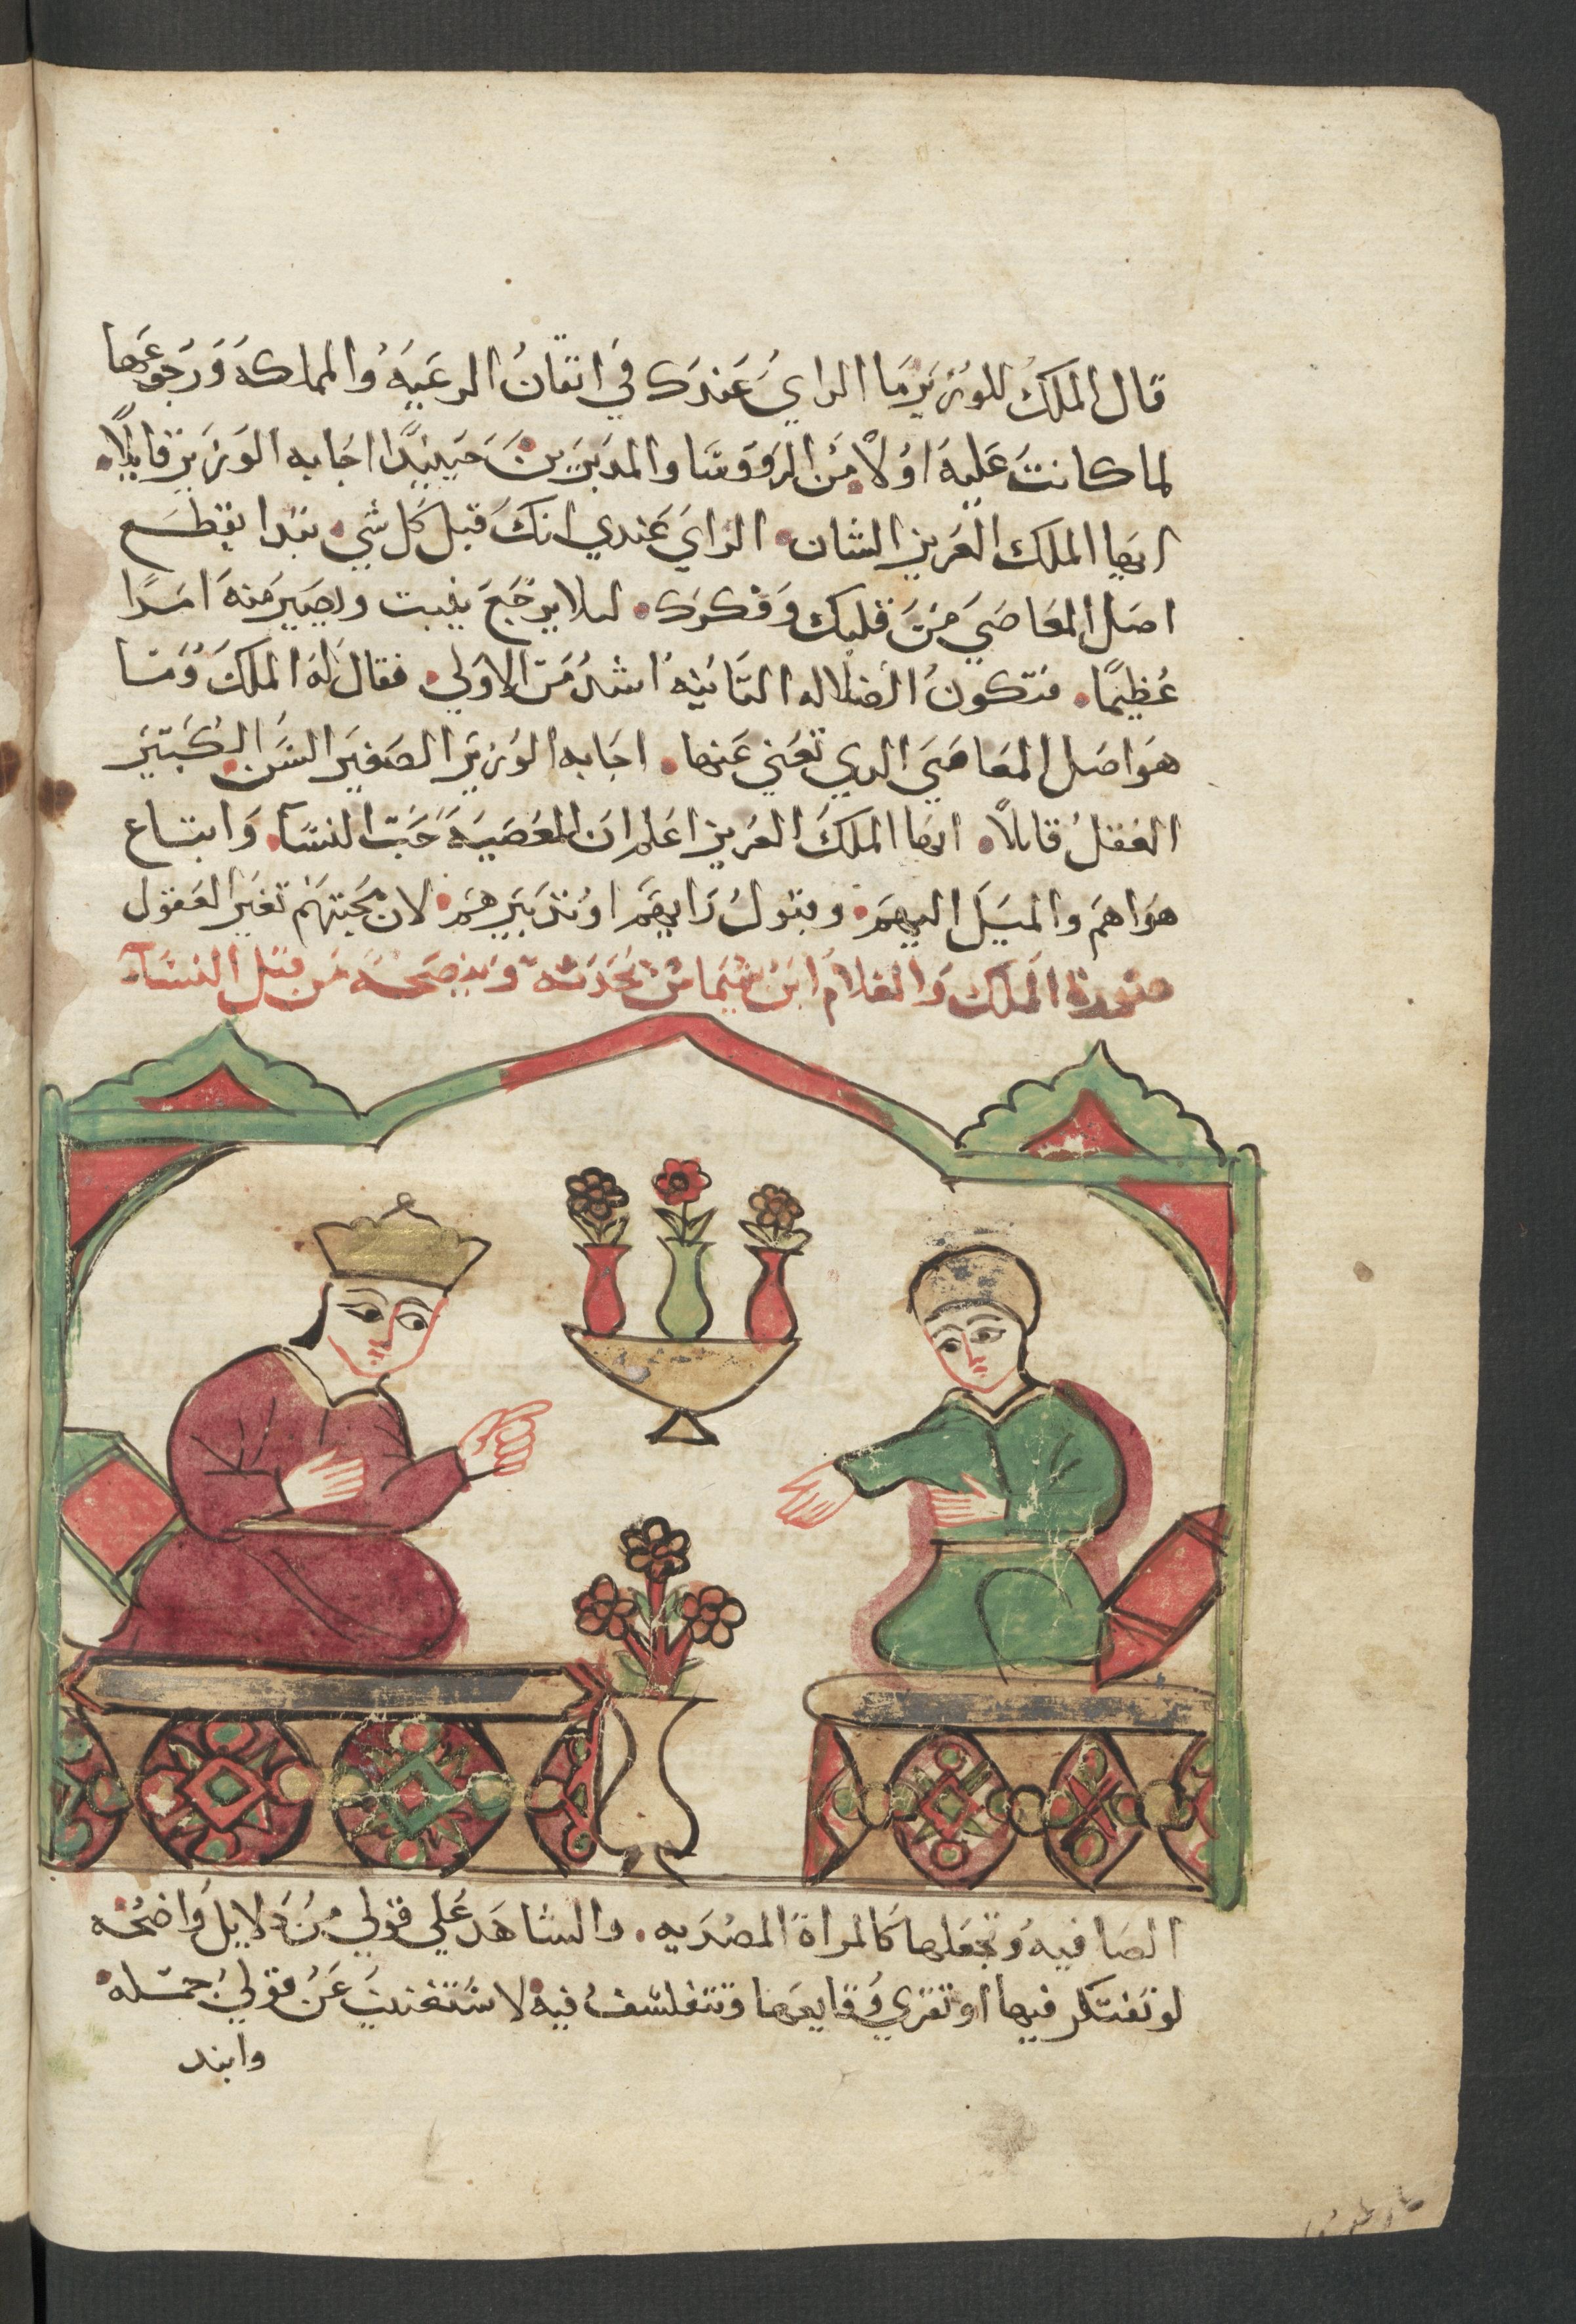 قال الملك للوزير ما الراي عندك في اتقان الرعيه والمملكه ورجوعها
لما كانت عليه اولا من الرووسا والمدبرين حينيدا اجابه الوزير قايلا
ايها الملك العزيز الشان الراي عندي انك قبل كل شي تبدا بقطع
اصل المعاصي من قلبك وفكرك ليلا يرجع ينبت ويصير منه امرا
عظيما فتكون الضلاله التانيه اشد من الاولي فقال له الملك وما
هو اصل المعاصي الدي تعني عنها اجابه الوزير الصغير السن الكبير
العقل قايلا ايها الملك العزيز اعلم ان المعصيه حب النسآ واتباع
هواهم والميل اليهم وقبول رايهم او تدبيرهم لان محبتهم تغير العقول
صورة الملك والغلام ابن شيماس يحدته وينصحه من قبل النسآ
الصافيه وتجعلها كالمراة المصديه والشاهد علي قولي من دلايل واضحه
لو تفتكر فيها او تقري وقايعها وتتفلسف فيه لاستغنيت عن قولي جمله
وابتد